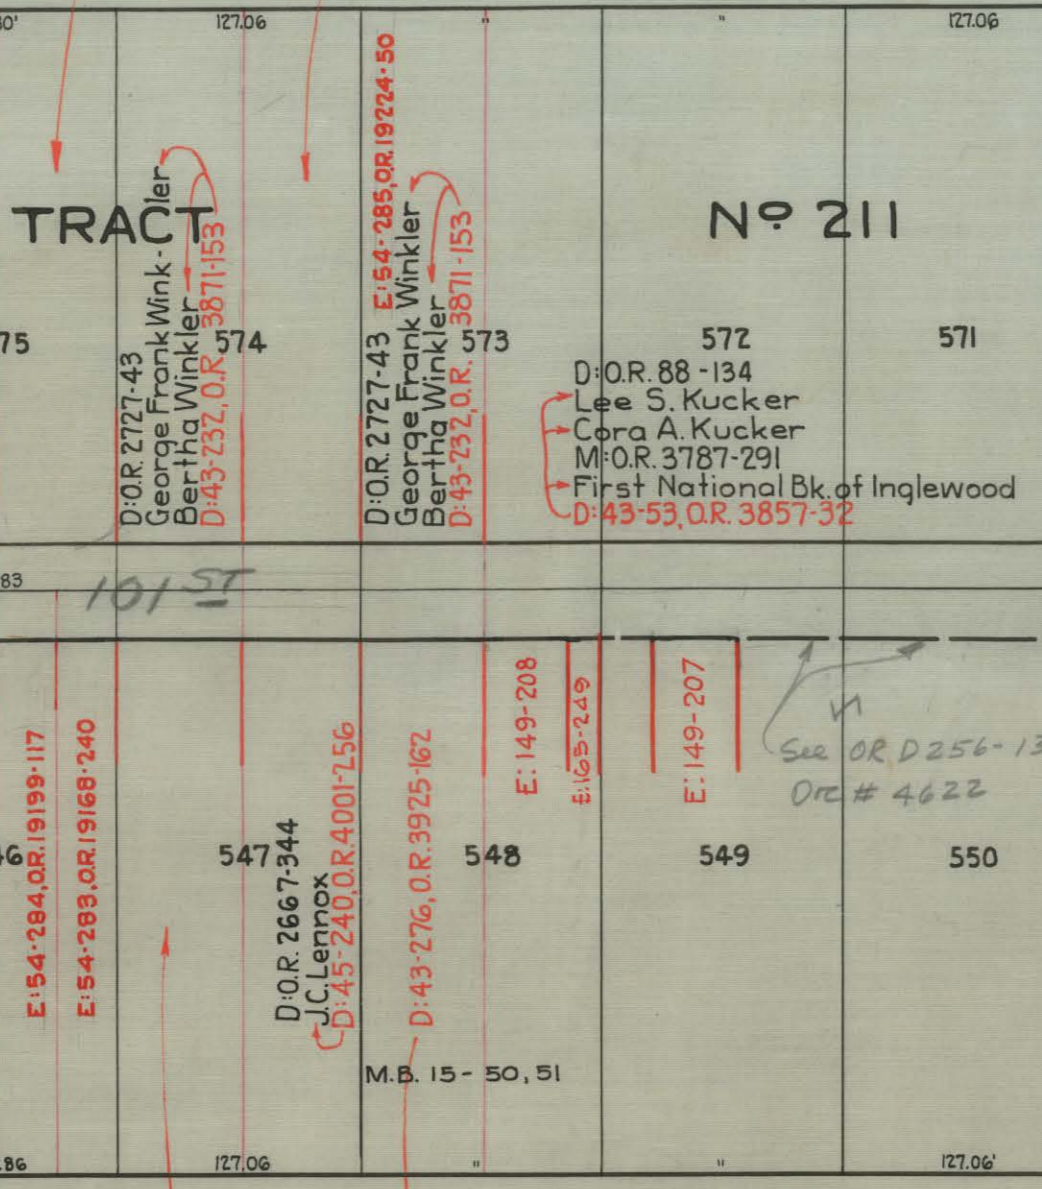 30'
127.06
"
"
127.06
TRACT
Nº 211
75
D:O.R. 2727-43
George Frank Wink-ler
Bertha Winkler
D:43-232, O.R. 3871-153
574
E:54-285, O.R.19224-50
D:O.R. 2727-43
George Frank Winkler
Bertha Winkler
D:43-232, O.R. 3871-153
573
572
D:O.R. 88-134
Lee S. Kucker
Cora A. Kucker
M:O.R. 3787-291
First National Bk. of Inglewood
D:43-53, O.R. 3857-32
571
83
101 ST
E:54-284, O.R.19199-117
E:54-283, O.R.19168-240
46
547
D:O.R. 2667-344
J.C. Lennox
D:45-240, O.R. 4001-256
D:43-276, O.R. 3925-162
548
E:149-208
E:165-249
E:149-207
549
See OR D256-13
Ord # 4622
550
M.B. 15 - 50, 51
.86
127.06
"
"
127.06'